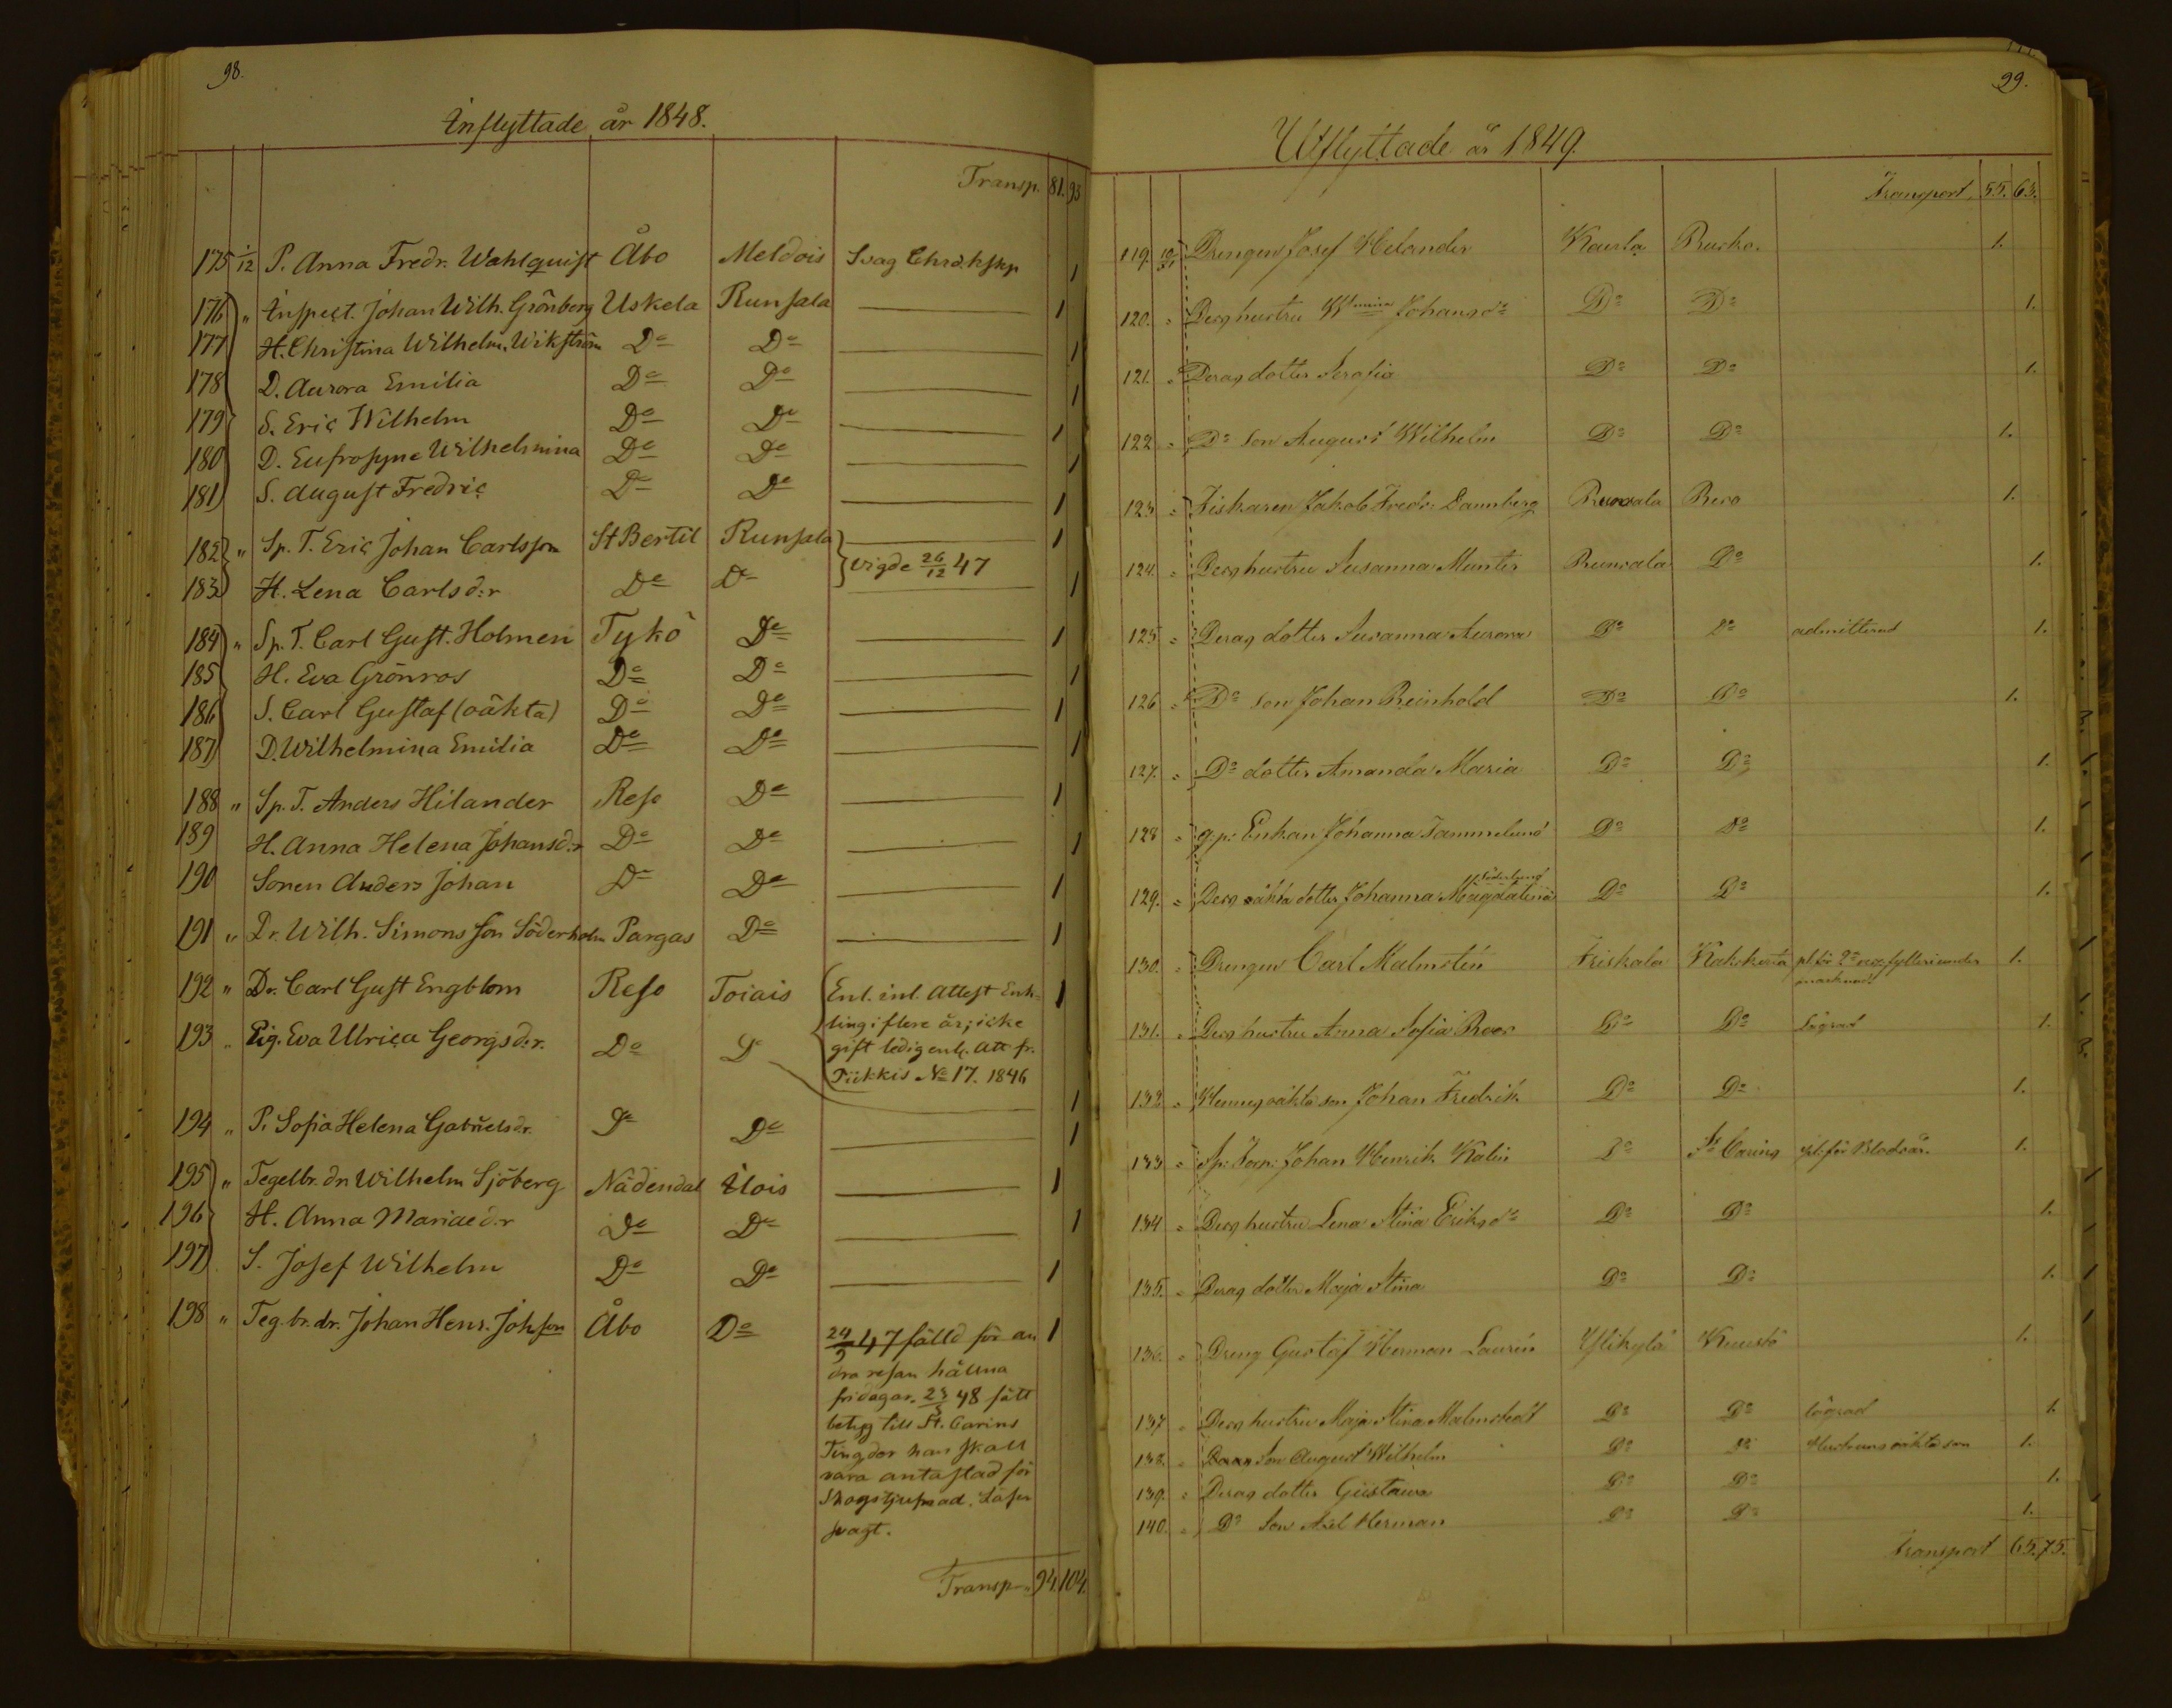 98.
Inflyttade år 1848.
Transp. 81. 93
175 1/12 P. Anna Fredr. Wahlquist Åbo Meldois Svag Chrd.kskp 1
176 " Inspect. Johan Wilh. Grönberg Uskela Runsala 1
177 H. Christina Wilhelm. Wikström Do Do 1
178 D. Aurora Emilia Do Do 1
179 S. Eric Wilhelm Do Do 1
180 D. Eufrosyne Wilhelmina Do Do 1
181 S. August Fredric Do Do 1
182 " Sp. T. Eric Johan Carlsson St Bertil Runsala 1
Vigde 26/12 47
183 H. Lena Carlsd:r Do Do 1
184 " Sp. T. Carl Gust. Holmen Tykö Do 1
185 H. Eva Grönros Do Do 1
186 S. Carl Gustaf (oäkta) Do Do 1
187 D. Wilhelmina Emilia Do Do 1
188 " Sp. T. Anders Hilander Reso Do 1
189 H. Anna Helena Johansd:r Do Do 1
190 Sonen Anders Johan Do Do 1
191 " Dr. Wilh. Simonsson Söderholm Pargas Do 1
192 " Dr. Carl Gust Engblom Reso Toiais Enl. inl. Attest Enk= 1
ling i flere år; icke
193 " Pig. Eva Ulrica Georgsd:r. Do Do gift ledig enl. Att fr.
Piikkis No 17. 1846 1
194 " P. Sofia Helena Gabrielsd:r. Do Do 1
195 " Tegelbr. dr Wilhelm Sjöberg Nådendal Ilois 1
196 H. Anna Mariaed:r Do Do 1
197 S. Josef Wilhelm Do Do 1
198 " Teg. br. dr. Johan Henr. Johsson Åbo Do 24/9 47 fälld för an 1
dra resan hållna
fridagar. 23/3 48 fått
betyg till St. Carins
Ting der han skall
vara antastad för
Skogstjufnad. Läser
svagt.
Transp. 94. 104.
99.
Utflyttade år 1849.
Transport 55. 63.
119. Drengen Josef Helander Kaurla Rusko. 1.
120. Dess hustru Johansdr Do Do 1.
121. Deras dotter Serafia Do Do 1.
122 Do son August Wilhelm Do Do 1.
123 Fiskaren Jakob Fredr. Dannberg Runsala Reso 1.
124. Dess hustru Susanna Munter Runsala Do 1.
125 Deras dotter Susanna Aurora Do Do admitterad 1.
126 Do son Johan Reinhold Do Do 1.
127. Do dotter Amanda Maria Do Do 1.
128 Enkan Johanna Tammelund Do Do 1.
129. Dess oäkta dotter Johanna Magdalena Söderlund Do Do 1.
130. Drengen Carl Malmstén Friskala Kakskerta 1.
131. Dess hustru Anna Sofia Roos Do Do lagrad 1.
132 Hennes oäkta son Johan Fredrik Do Do 1.
133 Sp: Torp: Johan Henrik Kalin Do St Carins 1.
134 Dess hustru Lena Stina Eriksdr Do Do 1.
135. Deras dotter Maja Stina Do Do 1.
136. Dreng Gustaf Herman Laurén Ylikylä Kuustö 1.
137 Dess hustru Maja Stina Malmstedt Do Do lagrad 1.
138. Deras Son August Wilhelm Do Do Hustruns oäkta son 1.
139. Deras dotter Gustava Do Do 1.
140. Do Son Axel Herman Do Do 1.
Transport 65. 75.